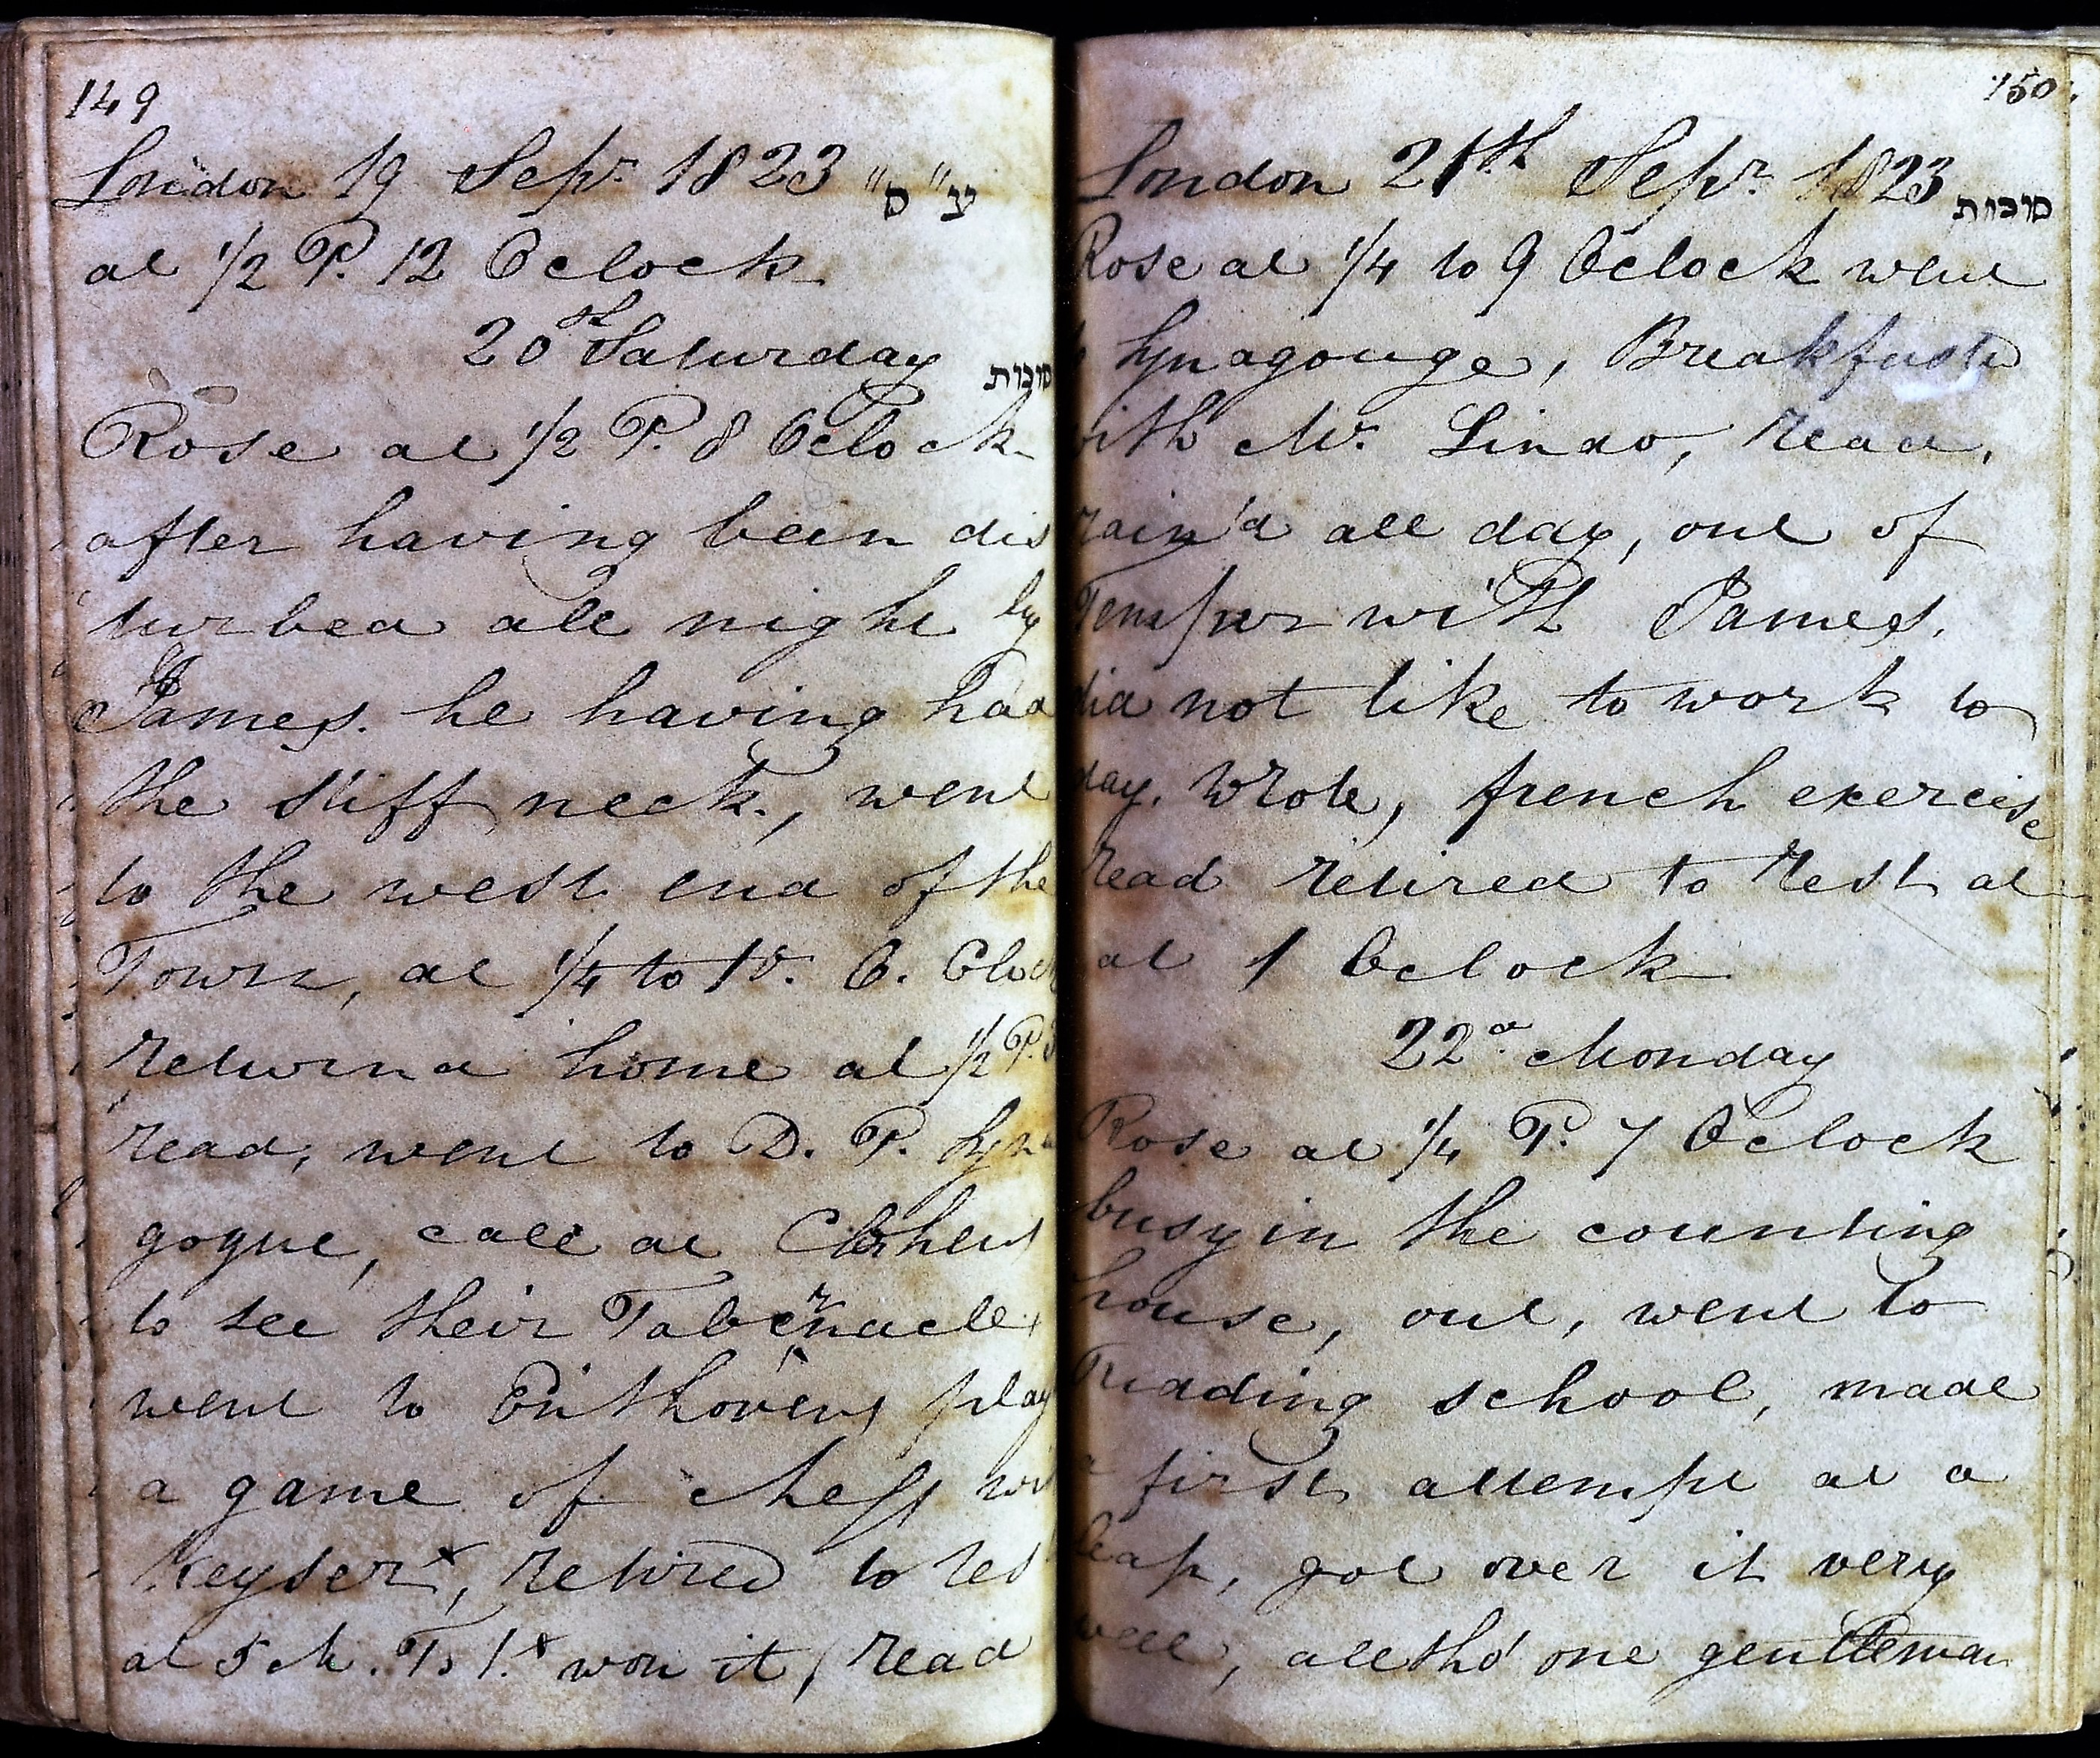 149
London 19 Sepr. 1823 ע"ס"
at 1/2 P. 12 Oclock
20th Saturday סוכות
Rose at 1/2 P. 8 Oclock
after having been dis
turbed all night by
James. he having had
the stiff neck, went
to the west end of the
Town, at 1/4 to 1 O. Clock
returnd home at 1/2 P.
read, went to D. P. Syna
gogue, call at Cohens
to see their Tabernacle,
went to Enthovens play
a game of chess
Keyser x, retired to res
at 5 M. P. 1. x won it, read
150.
London 21th Sepr. 1823 סוכות
Rose at 1/4 to 9 Oclock went
Synagouge, Breakfastd
with Mr. Lindo, read,
rain'd all day, out of
Temper with James.
did not like to work to
day. Wrote, french exercise
read retired to rest at
at 1 Oclock
22d. Monday
Rose at 1/4 P. 7 Oclock
busy in the counting
house, out, went to
Reading school, made
a first attempt at a
leap, got over it very
well, alltho' one gentleman